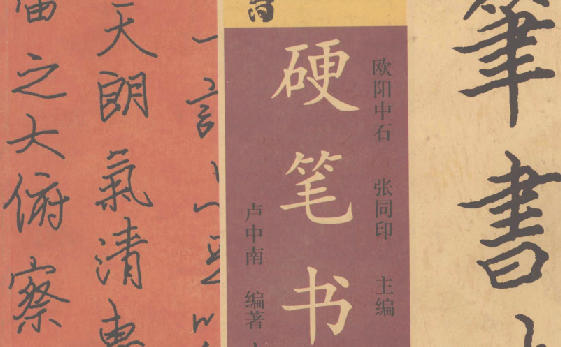 筆書
欧阳中石 张同印 主编
硬笔书
卢中南 编著
一言
天朗氣清惠
之大俯察